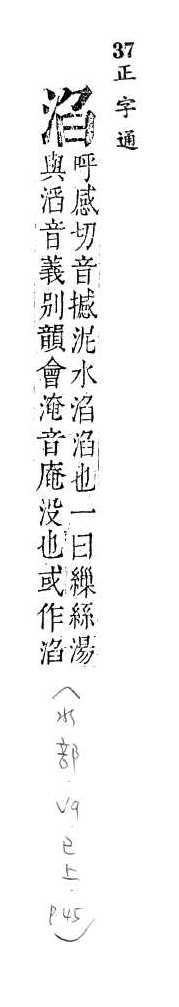 37 正字通
淊
呼感切音撼泥水淊淊也一曰繅絲湯
與滔音義別韻會淹音庵没也或作淊
(水部.V9.巳上.P.45)